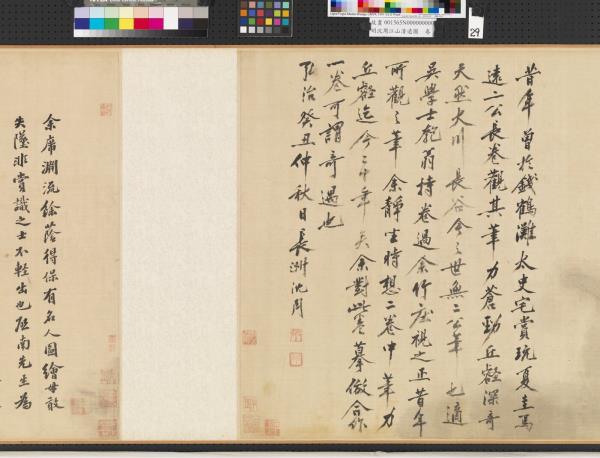 故畫 001565N000000000
明沈周江山清遠圖 卷
29
昔年曾於錢鶴灘太史宅賞玩夏圭馬
遠二公長卷觀其筆力蒼勁丘壑深奇
天然大川長谷今之世無二公筆也適
吳學士匏翁持卷過余竹庄視之正昔年
所觀之筆余靜坐時想二卷中筆力
丘壑迄今二十年矣余對此卷摹倣合作
一卷可謂奇遇也
弘治癸丑仲秋日長洲沈周
余席淵流餘蔭得保有名人圖繪毋敢
失墜非賞識之士不輕出也 南先生為